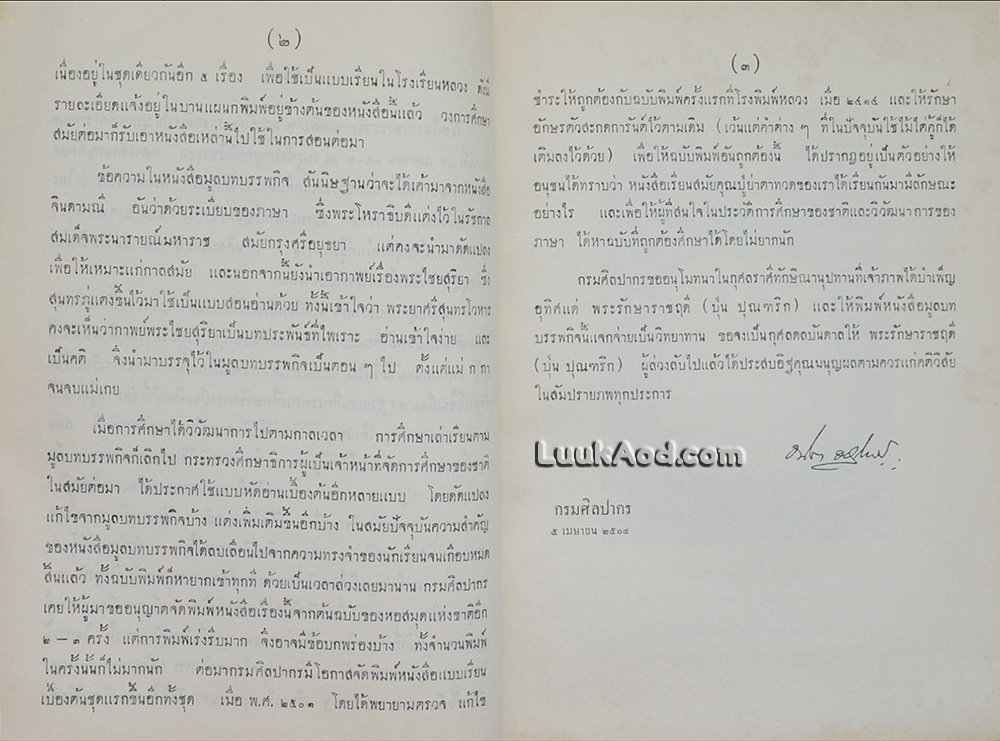 (๒)
เนื่องอยู่ในชุดเดียวกันอีก ๕ เรื่อง เพื่อใช้เป็นแบบเรียนในโรงเรียนหลวง ดังมี
รายละเอียดแจ้งอยู่ในบานแผนกพิมพ์อยู่ข้างต้นของหนังสือนี้แล้ว วงการศึกษา
สมัยต่อมาก็รับเอาหนังสือเหล่านั้นไปใช้ในการสอนต่อมา
ข้อความในหนังสือมูลบทบรรพกิจ สันนิษฐานว่าจะได้เค้ามาจากหนังสือ
จินดามณี อันว่าด้วยระเบียบของภาษา ซึ่งพระโหราธิบดีแต่งไว้ในรัชกาล
สมเด็จพระนารายณ์มหาราช สมัยกรุงศรีอยุธยา แต่คงจะนำมาดัดแปลง
เพื่อให้เหมาะแก่กาลสมัย และนอกจากนี้ยังนำเอากาพย์เรื่องพระไชยสุริยา ซึ่ง
สุนทรภู่แต่งขึ้นไว้มาใช้เป็นแบบสอนอ่านด้วย ทั้งนี้เข้าใจว่า พระยาศรีสุนทรโวหาร
คงจะเห็นว่ากาพย์พระไชยสุริยาเป็นบทประพันธ์ที่ไพเราะ อ่านเข้าใจง่าย และ
เป็นคติ จึงนำมาบรรจุไว้ในมูลบทบรรพกิจเป็นตอน ๆ ไป ตั้งแต่แม่ ก กา
จนจบแม่เกย
เมื่อการศึกษาได้วิวัฒนาการไปตามกาลเวลา การศึกษาเล่าเรียนตาม
มูลบทบรรพกิจก็เลิกไป กระทรวงศึกษาธิการผู้เป็นเจ้าหน้าที่จัดการศึกษาของชาติ
ในสมัยต่อมา ได้ประกาศใช้แบบหัดอ่านเบื้องต้นอีกหลายแบบ โดยดัดแปลง
แก้ไขจากมูลบทบรรพกิจบ้าง แต่งเพิ่มเติมขึ้นอีกบ้าง ในสมัยปัจจุบันความสำคัญ
ของหนังสือมูลบทบรรพกิจได้ลบเลือนไปจากความทรงจำของนักเรียนจนเกือบหมด
สิ้นแล้ว ทั้งฉบับพิมพ์ก็หายากเข้าทุกที ด้วยเป็นเวลาล่วงเลยมานาน กรมศิลปากร
เคยให้ผู้มาขออนุญาตจัดพิมพ์หนังสือเรื่องนี้จากต้นฉบับของหอสมุดแห่งชาติอีก
๒ – ๓ ครั้ง แต่การพิมพ์เร่งรีบมาก จึงอาจมีข้อบกพร่องบ้าง ทั้งจำนวนพิมพ์
ในครั้งนั้นก็ไม่มากนัก ต่อมากรมศิลปากรมีโอกาสจัดพิมพ์หนังสือแบบเรียน
เบื้องต้นชุดแรกขึ้นอีกทั้งชุด เมื่อ พ.ศ. ๒๕๐๑ โดยได้พยายามตรวจ แก้ไข
(๓)
ชำระให้ถูกต้องกับฉบับพิมพ์ครั้งแรกที่โรงพิมพ์หลวง เมื่อ ๒๔๑๔ และให้รักษา
อักษรตัวสะกดการันต์ไว้ตามเดิม (เว้นแต่คำต่าง ๆ ที่ในปัจจุบันใช้ไม้ไต่คู้ก็ได้
เติมลงไว้ด้วย) เพื่อให้ฉบับพิมพ์อันถูกต้องนี้ ได้ปรากฏอยู่เป็นตัวอย่างให้
อนุชนได้ทราบว่า หนังสือเรียนสมัยคุณปู่ย่าตาทวดของเราได้เรียนกันมามีลักษณะ
อย่างไร และเพื่อให้ผู้ที่สนใจในประวัติการศึกษาของชาติและวิวัฒนาการของ
ภาษา ได้หาฉบับที่ถูกต้องศึกษาได้โดยไม่ยากนัก
กรมศิลปากรขออนุโมทนาในกุศลราศีทักษิณานุปทานที่เจ้าภาพได้บำเพ็ญ
อุทิศแด่ พระรักษาราชฤดี (บุ๋น ปุณฑริก) และให้พิมพ์หนังสือมูลบท
บรรพกิจนี้แจกจ่ายเป็นวิทยาทาน ขอจงเป็นกุศลดลบันดาลให้ พระรักษาราชฤดี
(บุ๋น ปุณฑริก) ผู้ล่วงลับไปแล้วได้ประสบอิฐคุณมนุญผลตามควรแก่คติวิสัย
ในสัมปรายภพทุกประการ
LuukAod.com
กรมศิลปากร
๕ เมษายน ๒๕๐๔